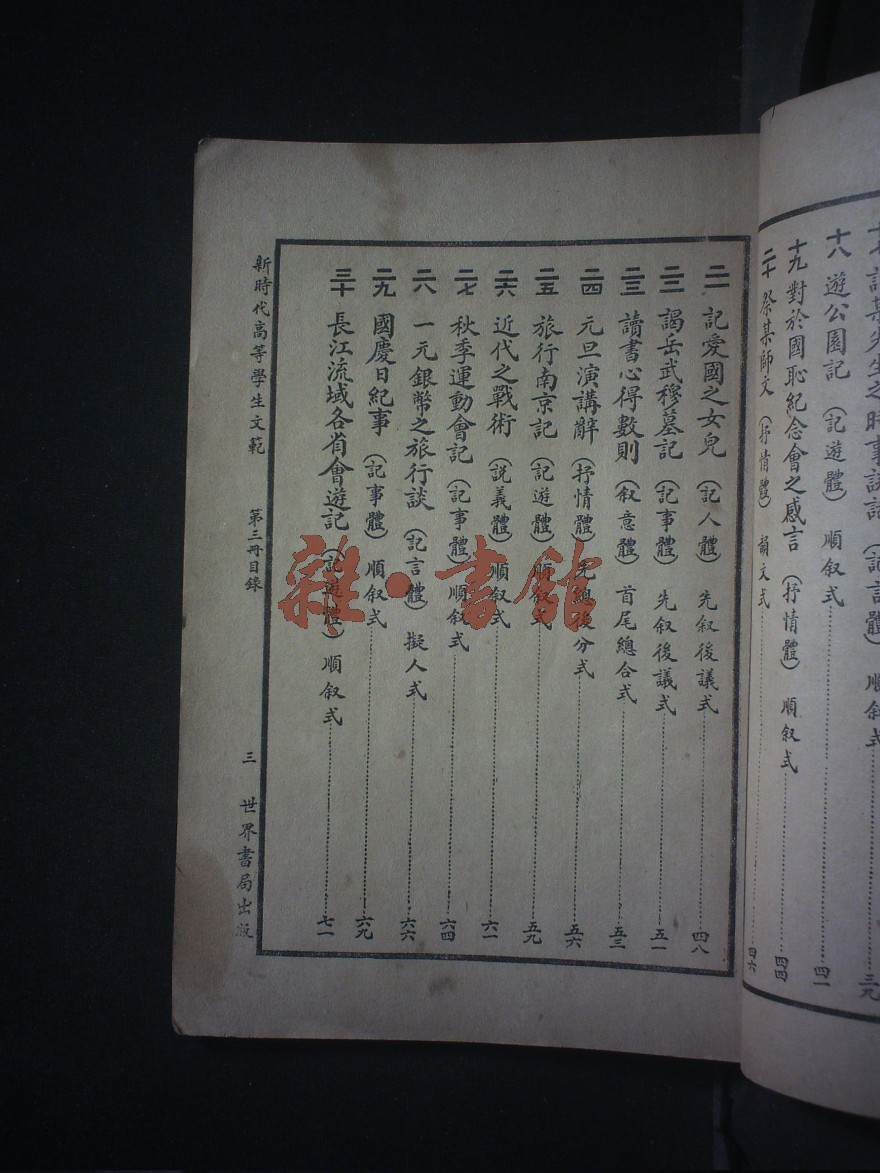 先生之時事談話（記言體）順叙式 三九
十八 遊公園記（記遊體）順叙式 四一
十九 對於國恥紀念會之感言（抒情體）順叙式 四四
二十 祭某師文（抒情體）韻文式 四六
二一 記愛國之女兒（記人體）先叙後議式 四八
二二 謁岳武穆墓記（記事體）先叙後議式 五一
二三 讀書心得數則（叙意體）首尾總合式 五三
二四 元旦演講辭（抒情體）先總後分式 五六
二五 旅行南京記（記遊體）順叙式 五九
二六 近代之戰術（說義體）順叙式 六一
二七 秋季運動會記（記事體）順叙式 六四
二八 一元銀幣之旅行談（記言體）擬人式 六六
二九 國慶日紀事（記事體）順叙式 六九
三十 長江流域各省會遊記（記遊體）順叙式 七一
新時代高等學生文範 第三冊目錄 三 世界書局出版
雜·書館